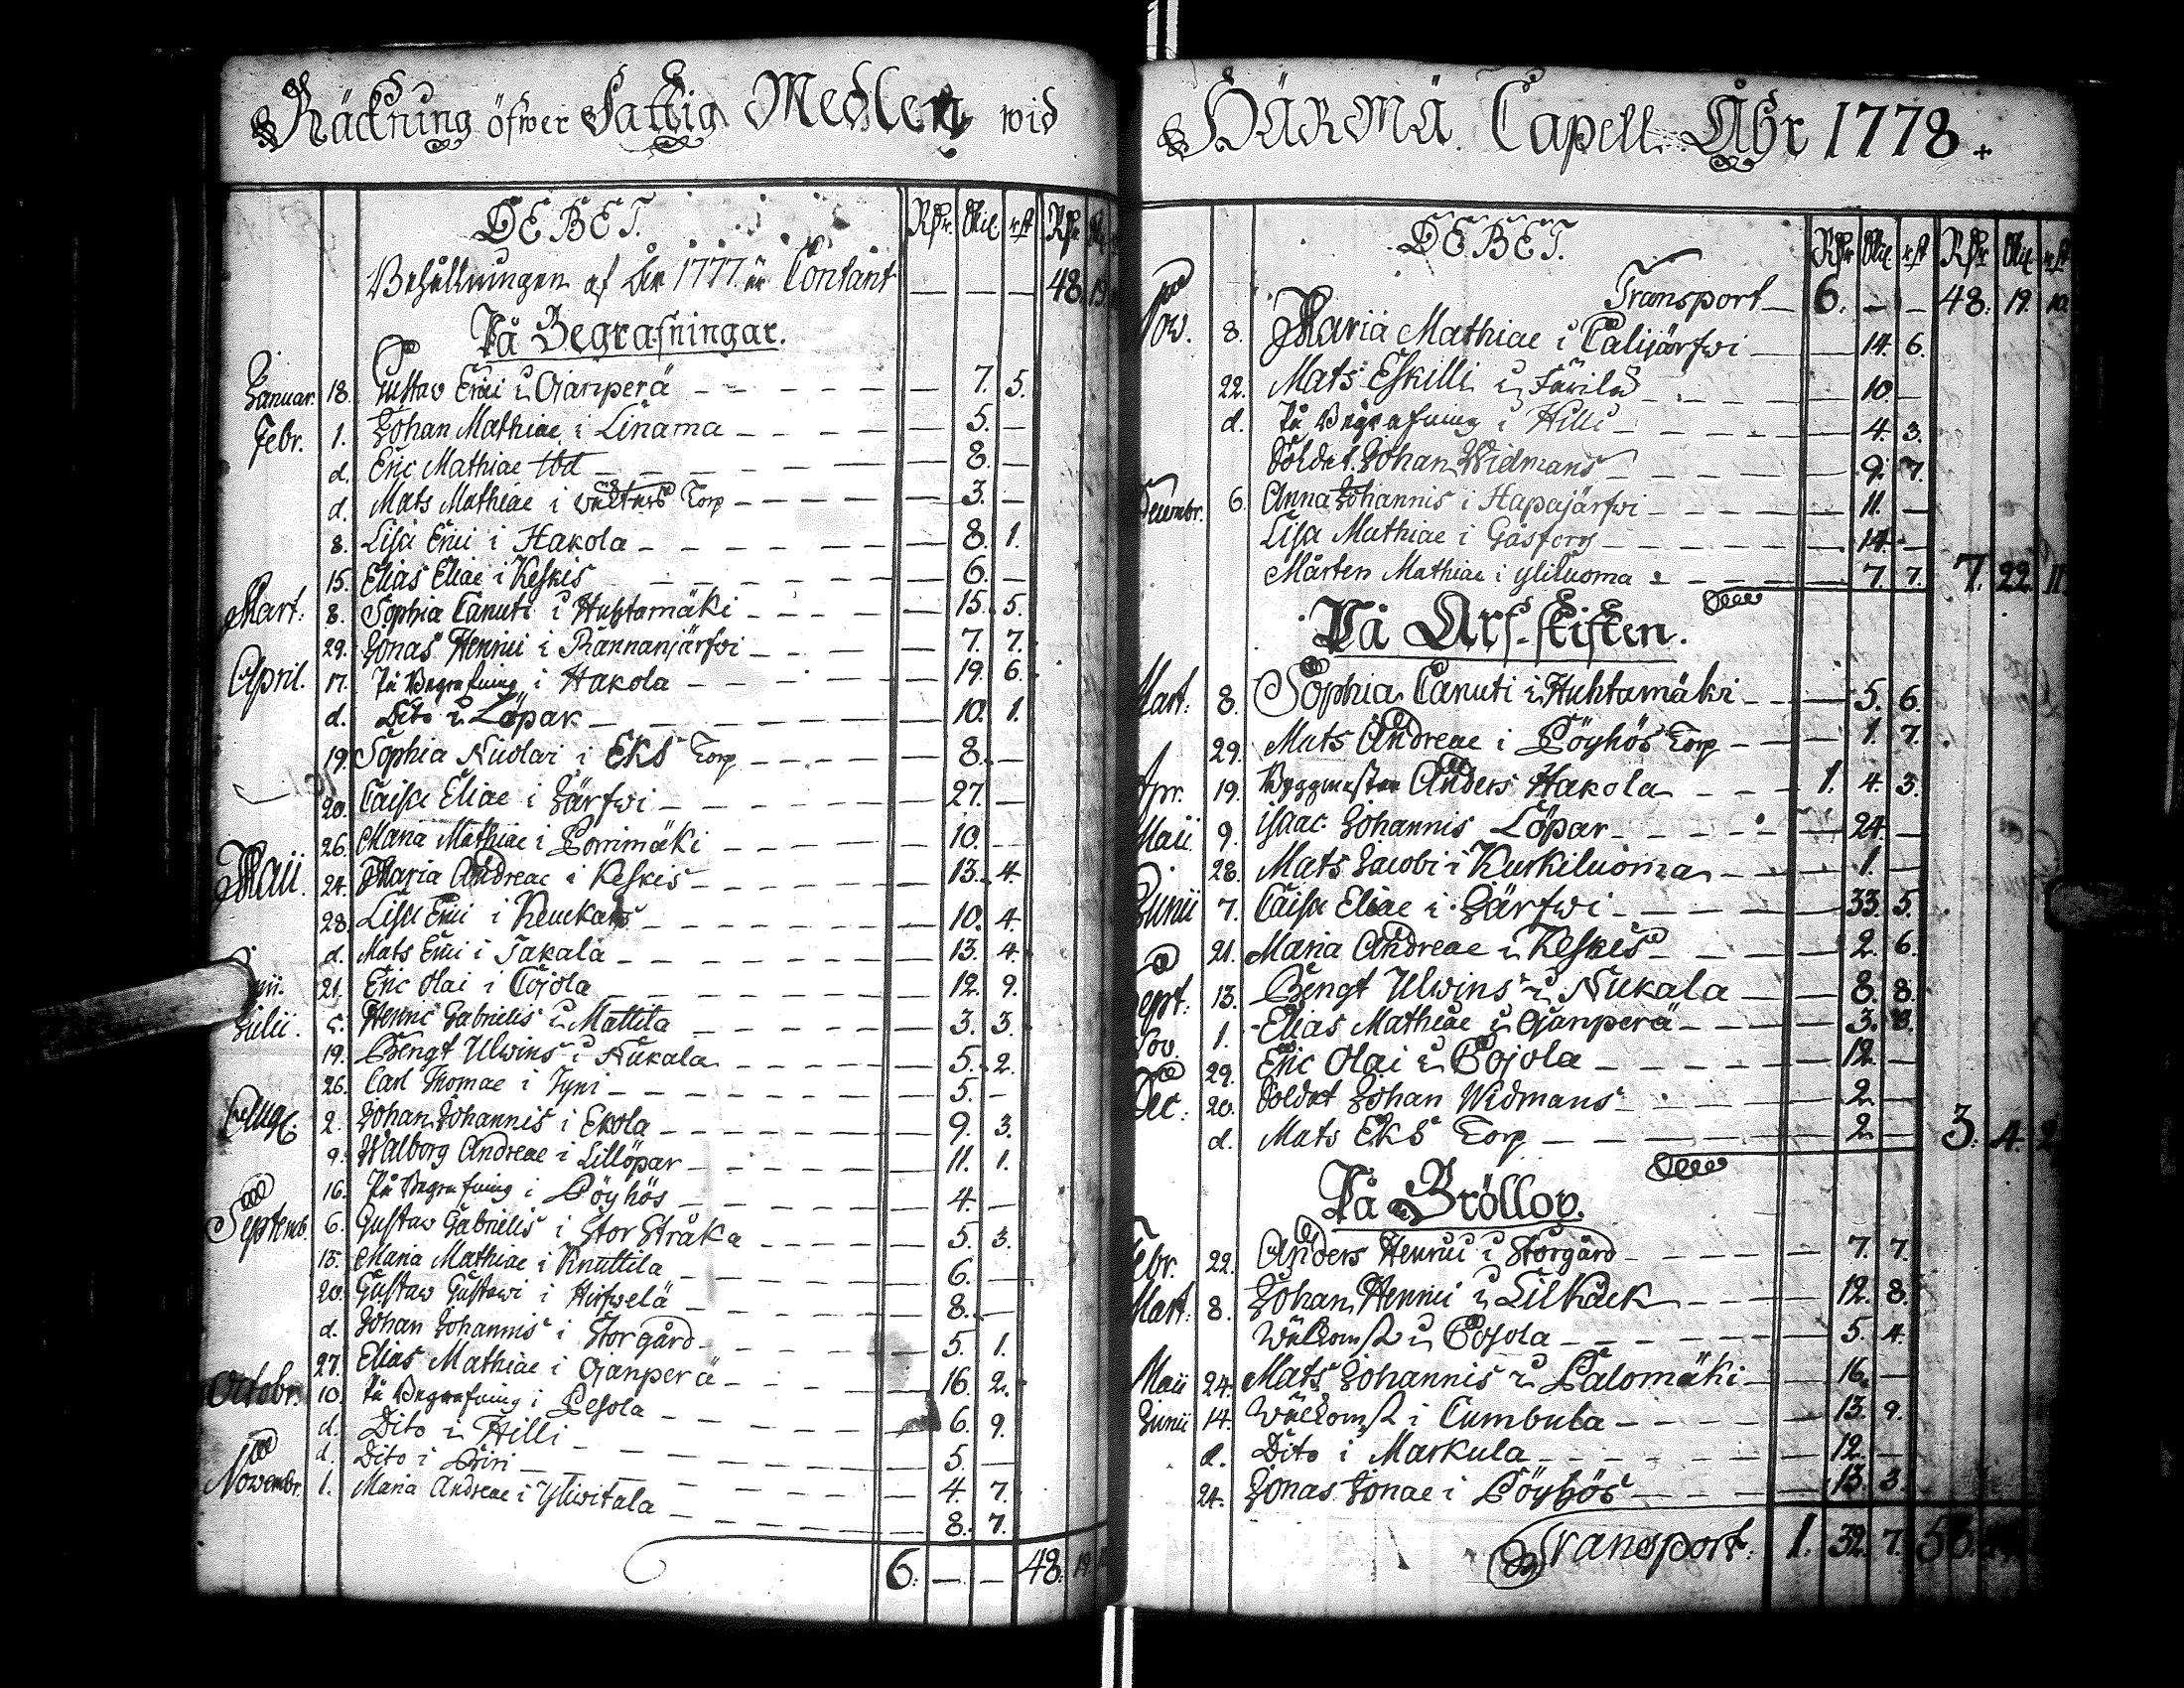 Räckning öfwer Fattig Medlen wid
DEBET. Rdr. Skil. rst Rdr
Behållningen af År 1777. är Contant — — — 48. 19.
På Begrafningar.
Januar. 18. Gustav Erici i Ojanperä — 7. 5.
Febr. 1. Johan Mathiae i Linama — 5. —
d. Eric Mathiae ibd — 8. —
d. Mats Mathiae i Torp — 3. —
8. Lisa Erici i Hakola — 8. 1.
15. Elias Eliae i Keskis — 6. —
Mart: 8. Sophia Canuti i Huhtamäki — 15. 5.
29. Jonas Henrici i Rannanjärfwi — 7. 7.
April. 17. På Begrafning i Hakola — 19. 6.
d. Dito i Löpar — 10. 1.
19. Sophia Nicolai i Eks Torp — 8. —
20. Caisa Eliae i Järfwi — 27. —
26. Maria Mathiae i Porrimäki — 10. —
Maii. 24. Maria Andreae i Keskis — 13. 4.
28. Lisa Erici i Keuckals — 10. 4.
d. Mats Erici i Takala — 13. 4.
21. Eric Olai i Cojola — 12. 9.
Julii. 5. Henric Gabrielis i Mattila — 3. 3.
19. Bengt Ulwins i Nukala — 5. 2.
26. Carl Thomae i Tyni — 5. —
Aug. 2. Johan Johannis i Ekola — 9. 3.
9. Walborg Andreae i Lillöpar — 11. 1.
16. På Begrafning i Pöyhös — 4. —
Septemb. 6. Gustaw Gabrielis i Stor Stråka — 5. 3.
13. Maria Mathiae i Knuttila — 6. —
20. Gustaw Gustawi i Hirfwelä — 8. —
d. Johan Johannis i Storgård — 5. 1.
27. Elias Mathiae i Ojanperä — 16. 2.
Octobr. 10. På Begrafning i Pesola — 6. 9.
d. Dito i Hilli — 5. —
d. Dito i Piri — 4. 7.
Novembr. 1. Maria Andreae i Yliwitala — 8. 7.
6. — — 48. 19.
HÄRMÄ Capell Åhr 1778.
DEBET. Rdr Skil rst Rdr Skil rst
Transport — 6. — — 48. 19. 10.
Nov. 8. Maria Mathiae i Calijärfwi — 14. 6.
22. Mats Eskilli i — 10. —
d. På Begrafning i Hilli — 4. 3.
Soldat. Johan Widmans — 9. 7.
Decembr. 6. Anna Johannis i Hapajärfwi — 11. —
Lisa Mathiae i Gåsforg — 14. —
Mårten Mathiae i Yliluoma — 7. 7. 7. 22. 11.
På Arf-skiften.
Mart: 8. Sophia Canuti i Huhtamäki — 5. 6.
29. Mats Andreae i Pöyhös Torp — 1. 7.
Apr. 19. Byggmästar Anders Hakola — 1. 4. 3.
Maii 9. Isaac Johannis Löpar — 24. —
28. Mats Jacobi i Kurkiluoma — 1. —
Junii 7. Caisa Eliae i Järfwi — 33. 5.
21. Maria Andreae i Keskis — 2. 6.
Sept: 13. Bengt Ulwins i Nukala — 8. 8.
Nov. 1. Elias Mathiae i Ojanperä — 3.
29. Eric Olai i Cojola — 12. —
Dec: 20. Soldat Johan Widmans — 2. —
d. Mats Eks Torp — 2. — 3. 4. 2
På Bröllop.
Febr. 22. Anders Henrici i Storgård — 7. 7.
Mart: 8. Johan Henrici i Lilkäck — 12. 8.
Wälkomst i Cojola — 5. 4.
Maii 24. Mats Johannis i Palomäki — 16. —
Junii 14. Wälkomst i Cumbula — 13. 9.
d. Dito i Markula — 12. —
24. Jonas Jonae i Pöyhös — 13. 3.
Transport: 1. 32. 7.